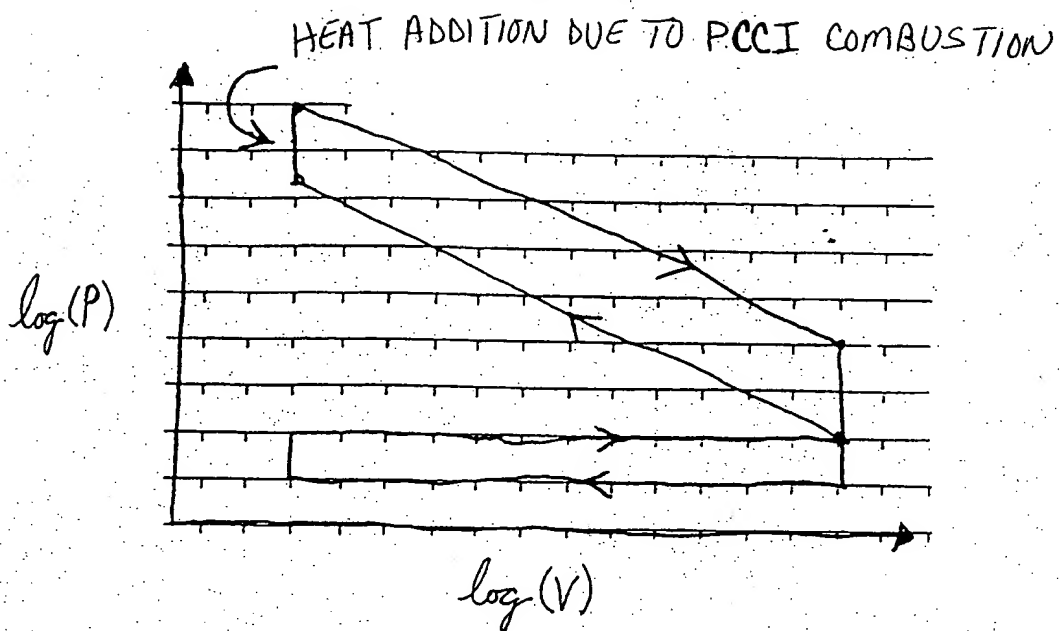 HEAT ADDITION DUE TO PCCI COMBUSTION
log(P)
log(V)